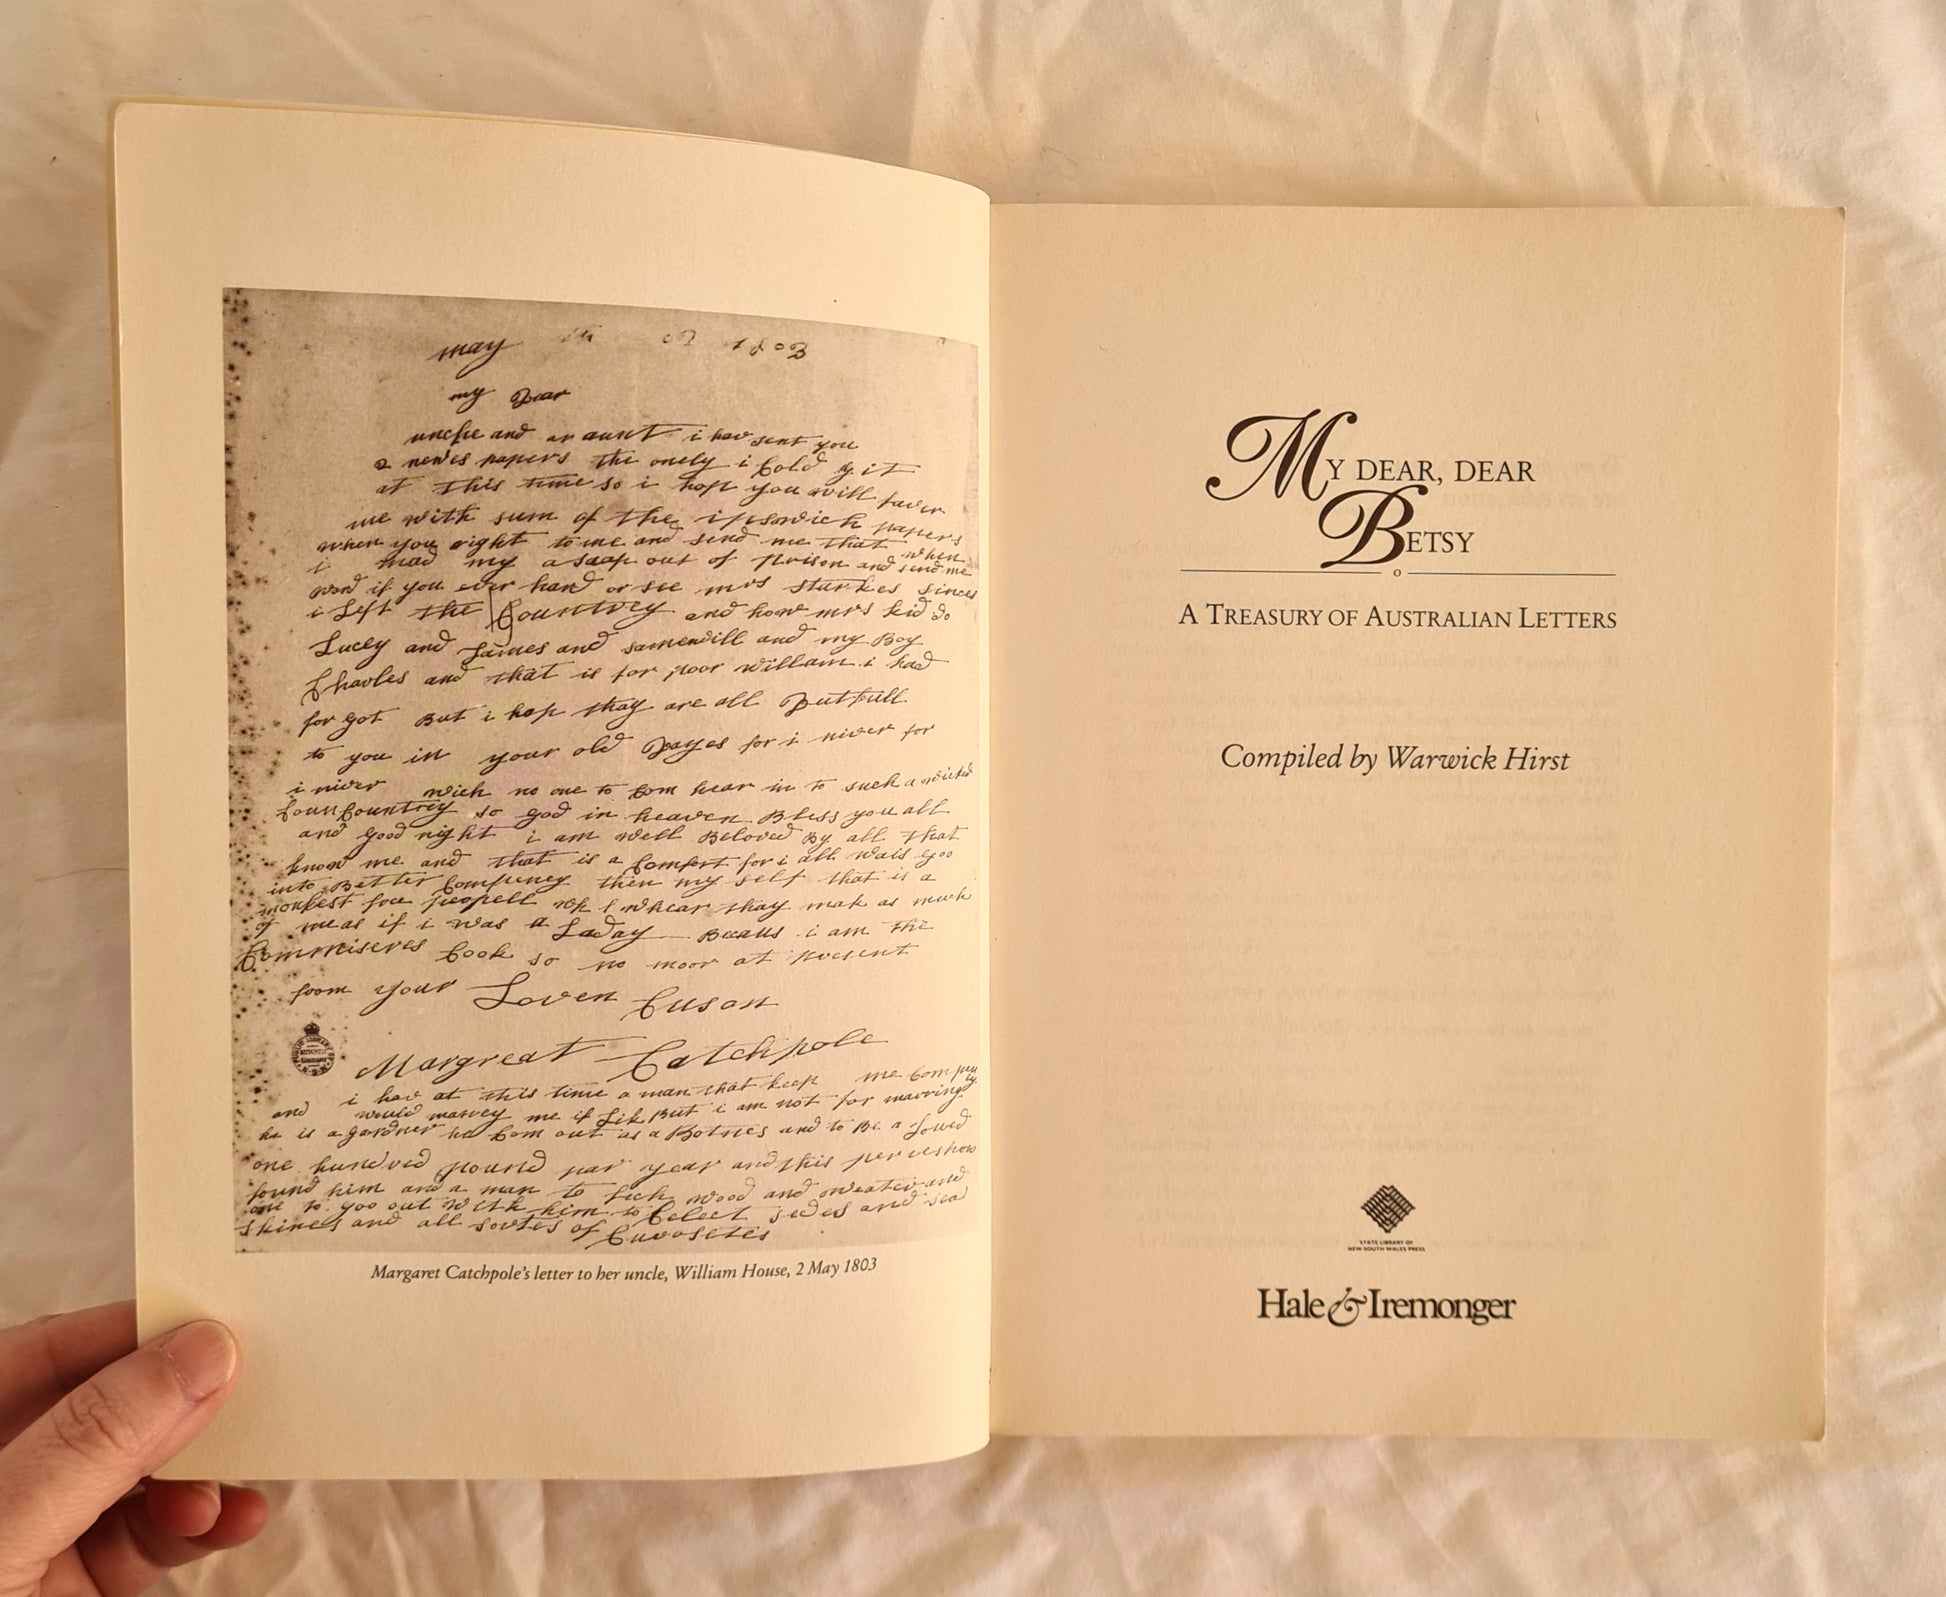 may 02 1803
my Dear
uncke and or aunt i hav sent you
2 newes papers the onely i Cold git
at this time so i hop you will faver
me with sum of the ipswich papers
when you right to me and send me that when
i mad my asaap out of Prison and send me
word if you ever hard or see mrs starkes sinces
i Left the Countrey and how mrs kid do
Lucey and James and samewill and my Boy
Charles and that is for poor william i had
for got But i hop thay are all Dutfull
to you in your old Dayes for i niver for
i niver wich no one to Com hear in to such a wicked
Countrey so god in heaven Bless you all
and good night i am well Beloved By all that
know me and that is a Comfort for i all wais goo
into Better Compuney then my self that is a
of free peopell whear thay mak as much
of me as if i was a Laday Becaus i am the
Commiseres Cook so no moor at present
from your Loven Cuson
Margreat Catchpole
i hav at this time a man that keep me Compny
and would marrey me if Lik But i am not for marring
he is a gardner he Com out as a Botnes and to Be a Lowed
one hundred pound par year and this per
found him and a man to fich wood and
out to goo out with him to Celect sedes and
skines and all sortes of Curosetes
Margaret Catchpole's letter to her uncle, William House, 2 May 1803
MY DEAR, DEAR
BETSY
A TREASURY OF AUSTRALIAN LETTERS
Compiled by Warwick Hirst
STATE LIBRARY OF
NEW SOUTH WALES PRESS
Hale & Iremonger